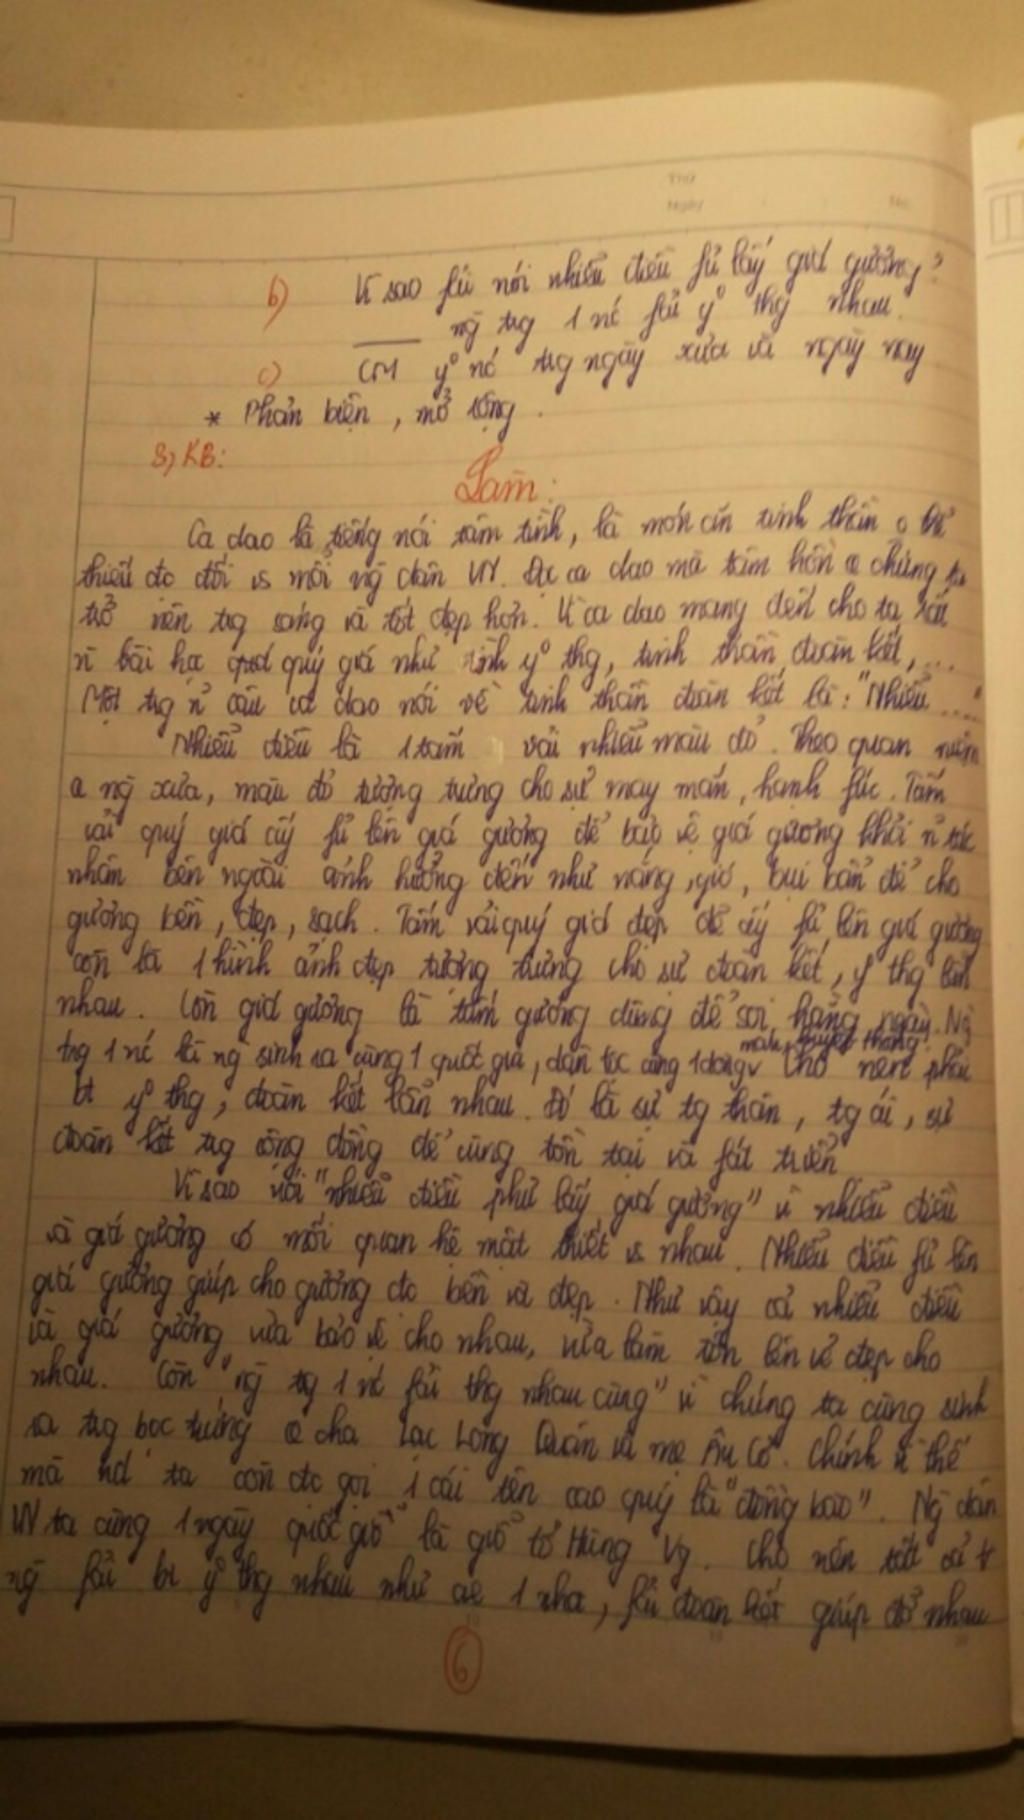 Thứ
Ngày No.
b) Vì sao fải nói nhiễu điều fủ lấy giá gương?
ng trg 1 nc fải y thg nhau.
c) CM y nc trg ngày xưa và ngày nay
* Phản biện, mở rộng.
3, KB:
Làm:
Ca dao là tiếng nói tâm tình, là món ăn tinh thần o thể
thiếu đc đối vs mỗi ng dân VN. Đọc ca dao mà tâm hồn chúng ta
trở nên trg sáng và tốt đẹp hơn. Vì ca dao mang đến cho ta rất
n bài học quý giá như tình y thg, tinh thần đoàn kết,...
Một trg n câu ca dao nói về tinh thần đoàn kết là: "Nhiễu ...."
Nhiễu điều là 1 tấm vải nhiễu màu đỏ. Theo quan niệm
ng xưa, màu đỏ tượng trưng cho sự may mắn, hạnh fúc. Tấm
vải quý giá ấy fủ lên giá gương để bảo vệ giá gương khỏi n tác
nhân bên ngoài ảnh hưởng đến như nắng, gió, bụi bẩn để cho
gương bền, đẹp, sạch. Tấm vải quý giá đẹp đẽ ấy fủ lên giá gương
còn là 1 hình ảnh đẹp tượng trưng cho sự đoàn kết, y thg lẫn
nhau. Còn giá gương là tấm gương dùng để soi hằng ngày. Ng
trg 1 nc là ng sinh ra cùng 1 quốc gia, dân tộc cùng 1 dòng máu, truyền thống. Cho nên phải
bt y thg, đoàn kết lẫn nhau. Đó là sự tg thân, tg ái, sự
đoàn kết trg cộng đồng để cùng tồn tại và fát triển
Vì sao nói "nhiễu điều phủ lấy giá gương" vì nhiễu điều
và giá gương có mối quan hệ mật thiết vs nhau. Nhiễu điều fủ lên
giá gương giúp cho gương đc bền và đẹp. Như vậy cả nhiễu điều
và giá gương vừa bảo vệ cho nhau, vừa làm tôn lên vẻ đẹp cho
nhau. Còn "ng trg 1 nc fải thg nhau cùng" vì chúng ta cùng sinh
ra trg bọc trứng cha Lạc Long Quân và mẹ Âu Cơ. Chính vì thế
mà nd ta còn đc gọi 1 cái tên cao quý là "đồng bào". Ng dân
VN ta cùng 1 ngày quốc giỗ là giỗ tổ Hùng Vg. Cho nên tất cả
ng fải bt y thg nhau như ae 1 nhà, fải đoàn kết giúp đỡ nhau
6